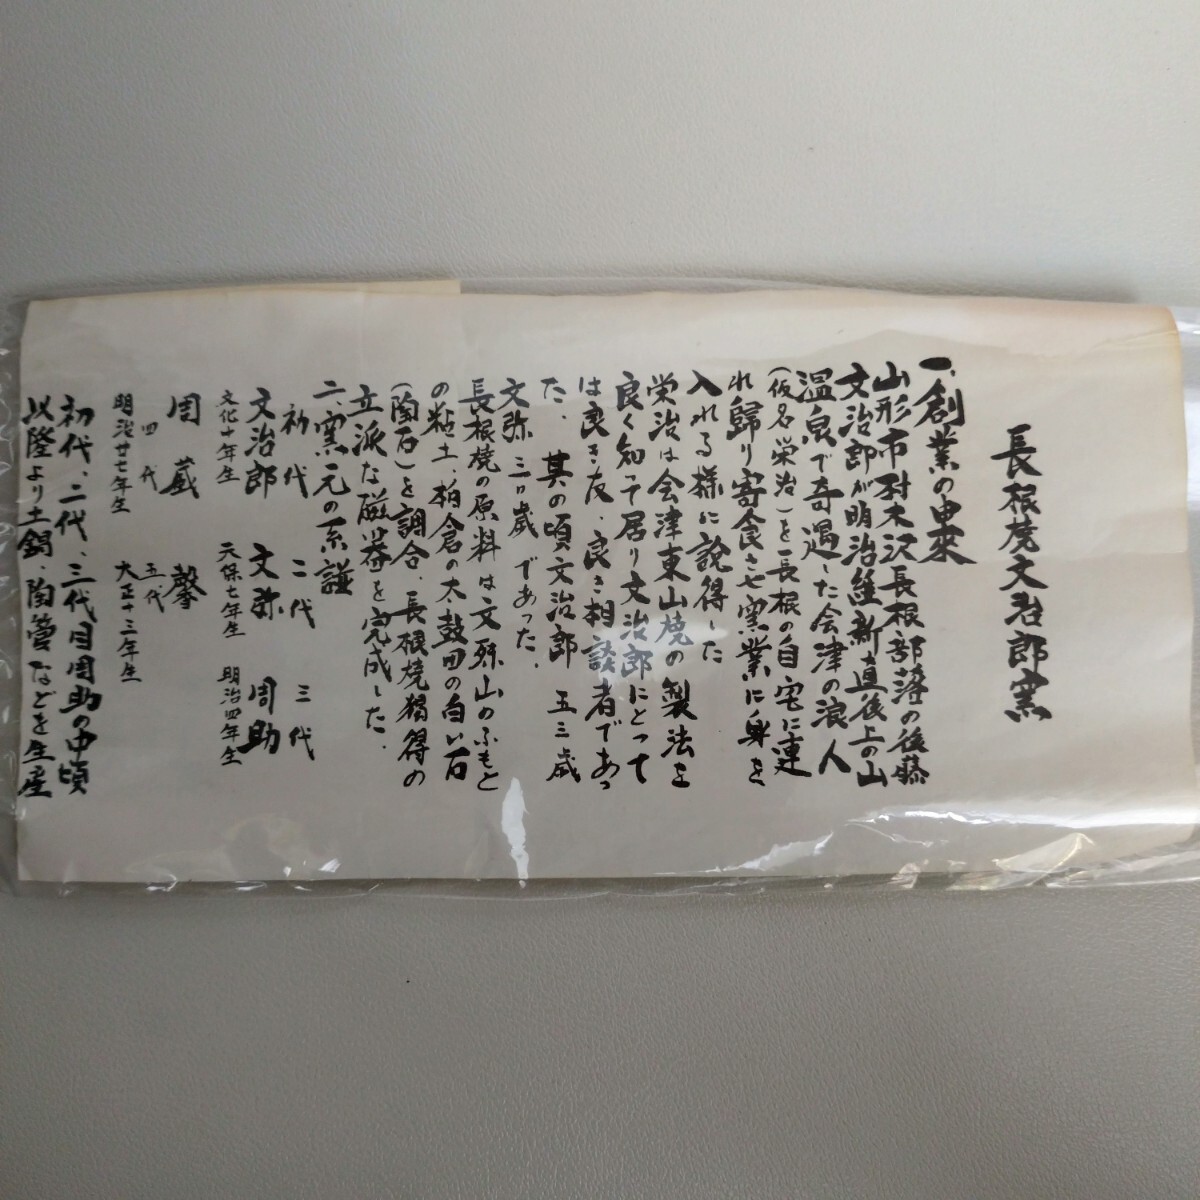 長根焼文治郎窯
一、創業の由来
山形市村木沢長根部落の後藤
文治郎が明治維新直後上の山
温泉で奇遇した会津の浪人
(仮名栄治)を長根の自宅に連
れ歸り寄食させ窯業に身を
入れる様に説得した
栄治は会津東山焼の製法を
良く知って居り文治郎にとって
は良き友、良き相談者であっ
た、其の頃文治郎 五三歳
文弥 三一歳であった、
長根焼の原料は文殊山のふもと
の粘土、柏倉の太鼓田の白い石
(陶石)を調合、長根焼獨得の
立派な磁器を完成した、
二、窯元の系譜
初代 二代 三代
文治郎 文弥 周助
文化十年生 天保七年生 明治四年生
周蔵 馨
四代 五代
明治廿七年生 大正十三年生
初代、二代、三代目周助の中頃
以降より土鍋、陶管などを生産